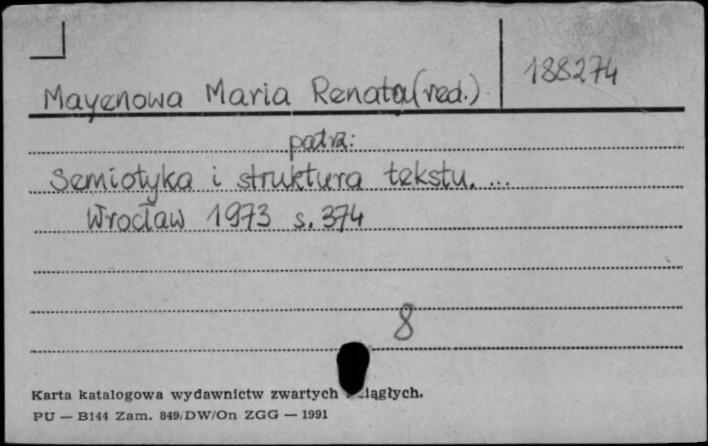 Mayenowa Maria Renata (red.)
188274
patrz:
Semiotyka i struktura tekstu. ...
Wrocław 1973 s. 374
8
Karta katalogowa wydawnictw zwartych
PU — B144 Zam. 849/DW/On ZGG — 1991